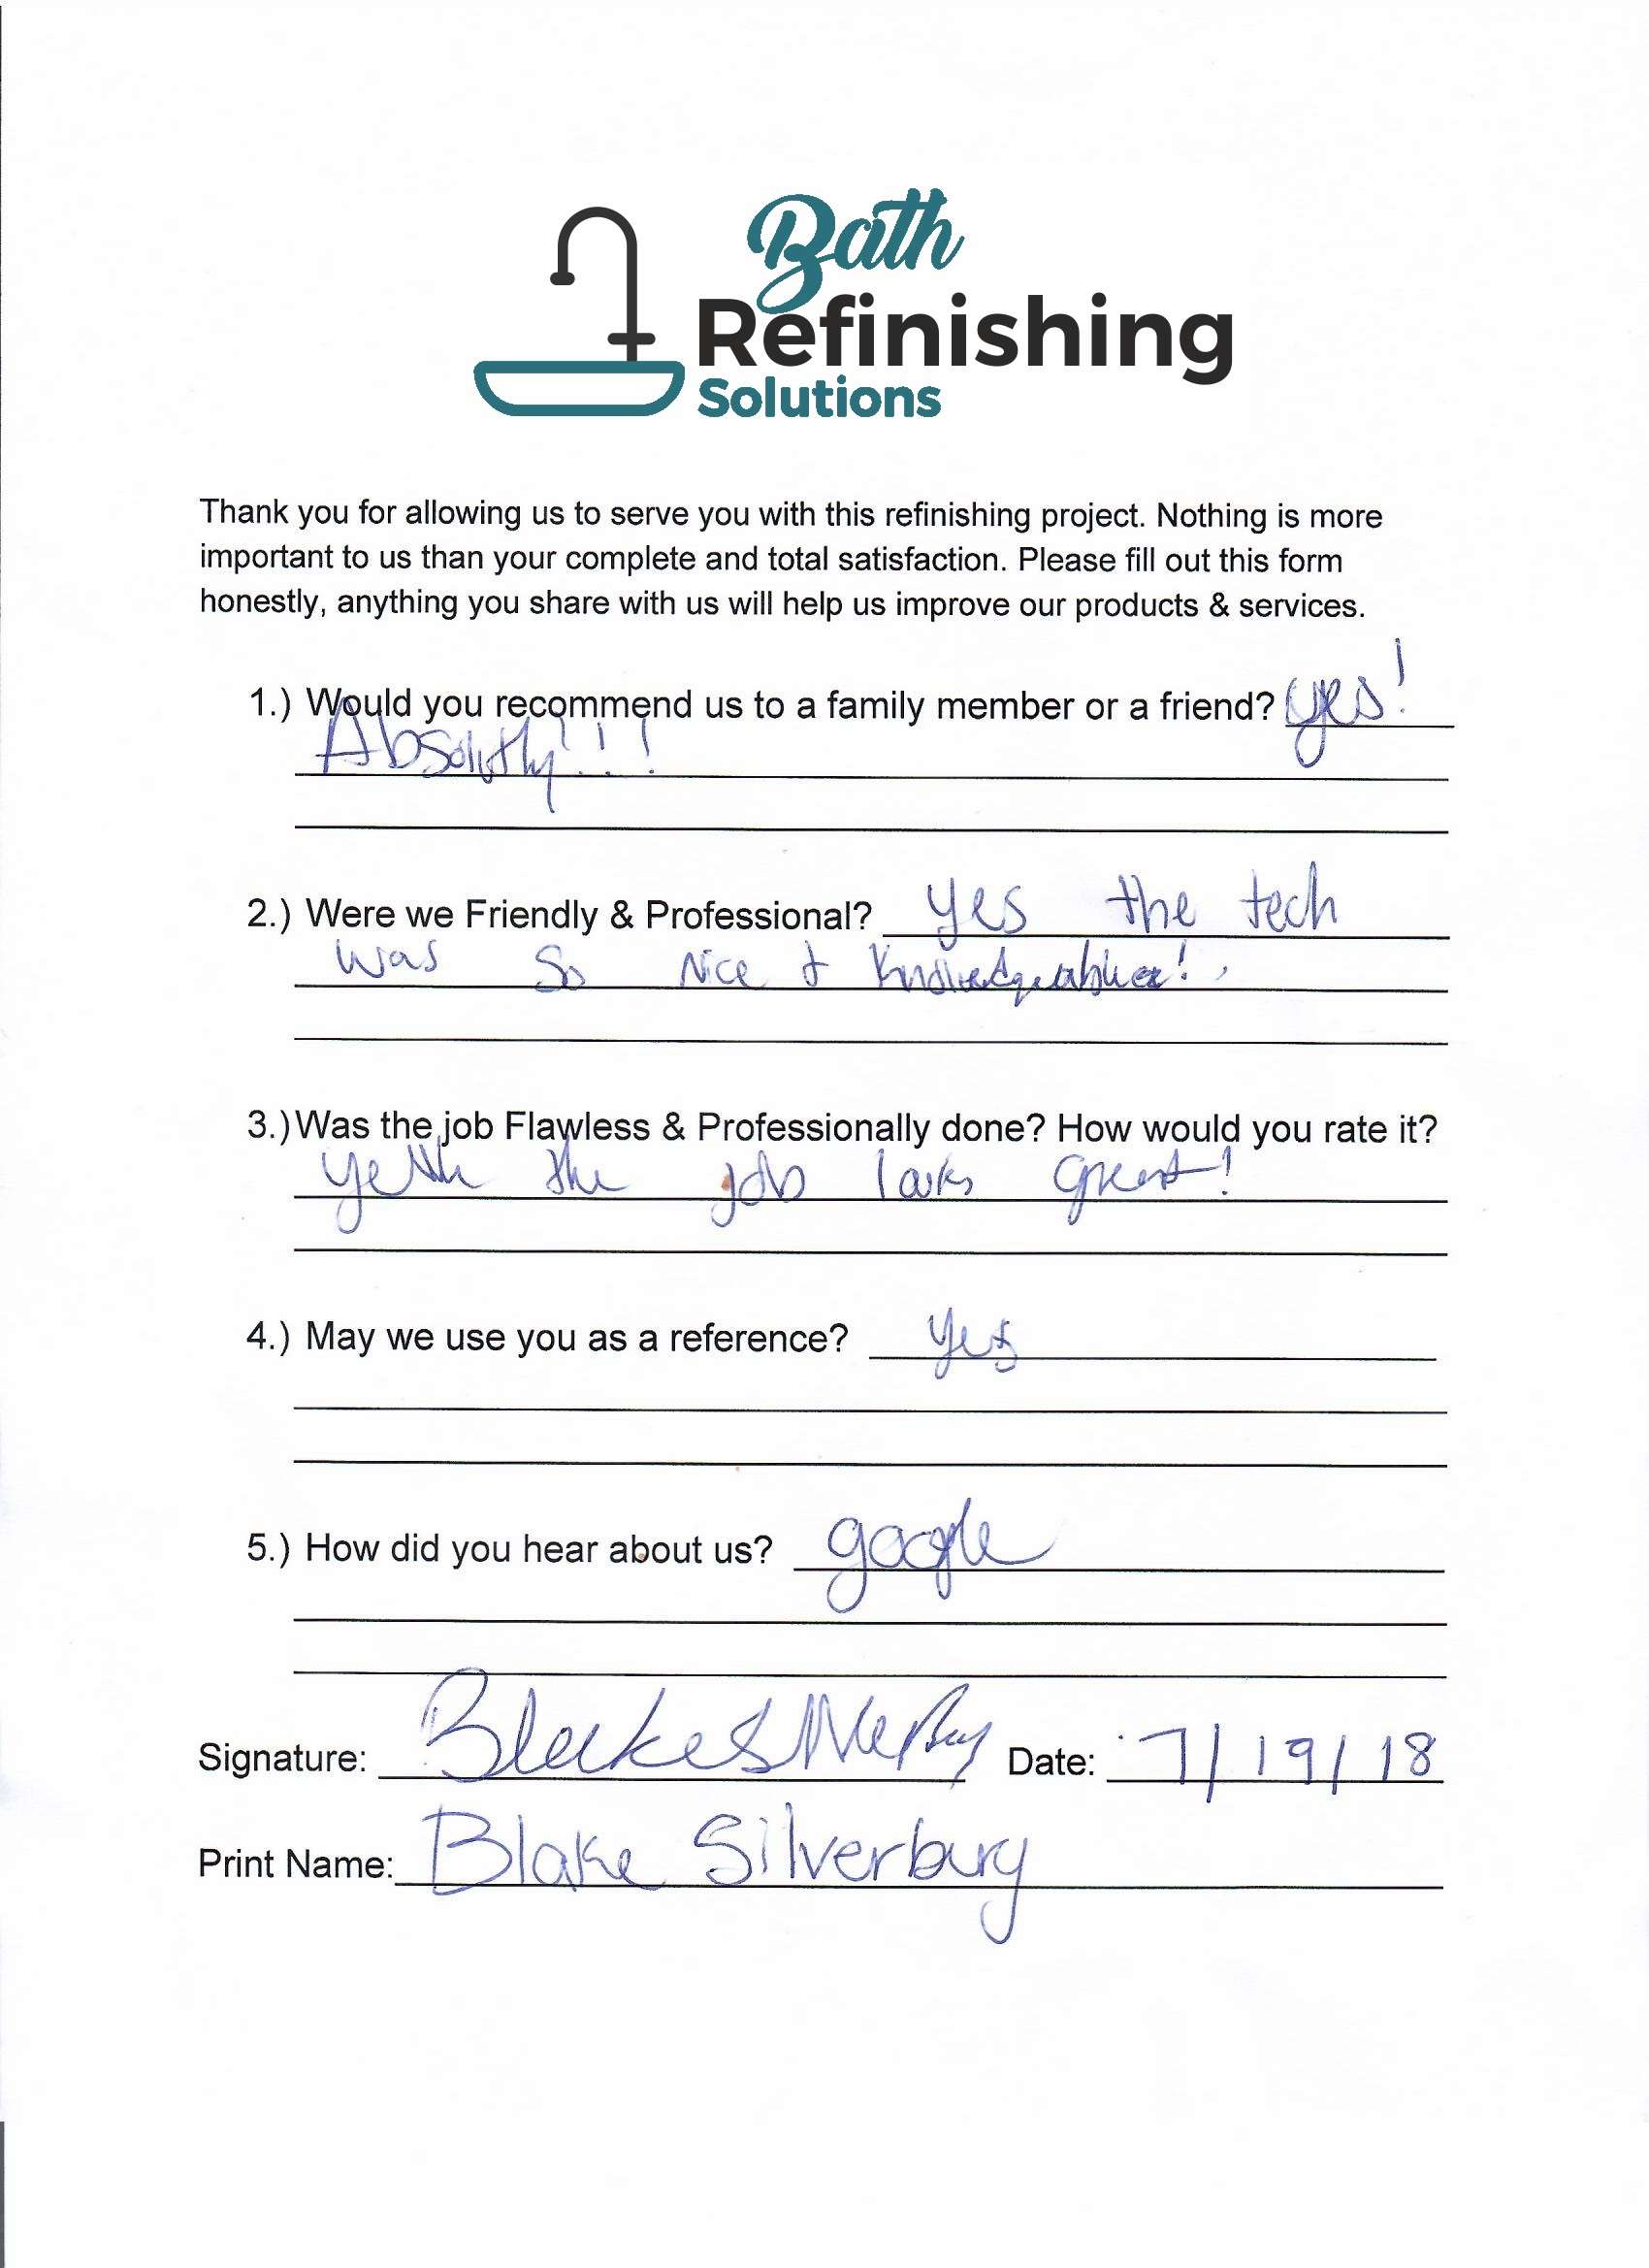 Bath
Refinishing
Solutions
Thank you for allowing us to serve you with this refinishing project. Nothing is more
important to us than your complete and total satisfaction. Please fill out this form
honestly, anything you share with us will help us improve our products & services.
1.) Would you recommend us to a family member or a friend? yes!
Absolutly!!!
2.) Were we Friendly & Professional? yes the tech
was so Nice &
3.) Was the job Flawless & Professionally done? How would you rate it?
the job looks great!
4.) May we use you as a reference? yes
5.) How did you hear about us? google
Signature: Date: 7/19/18
Print Name: Blake Silverbury